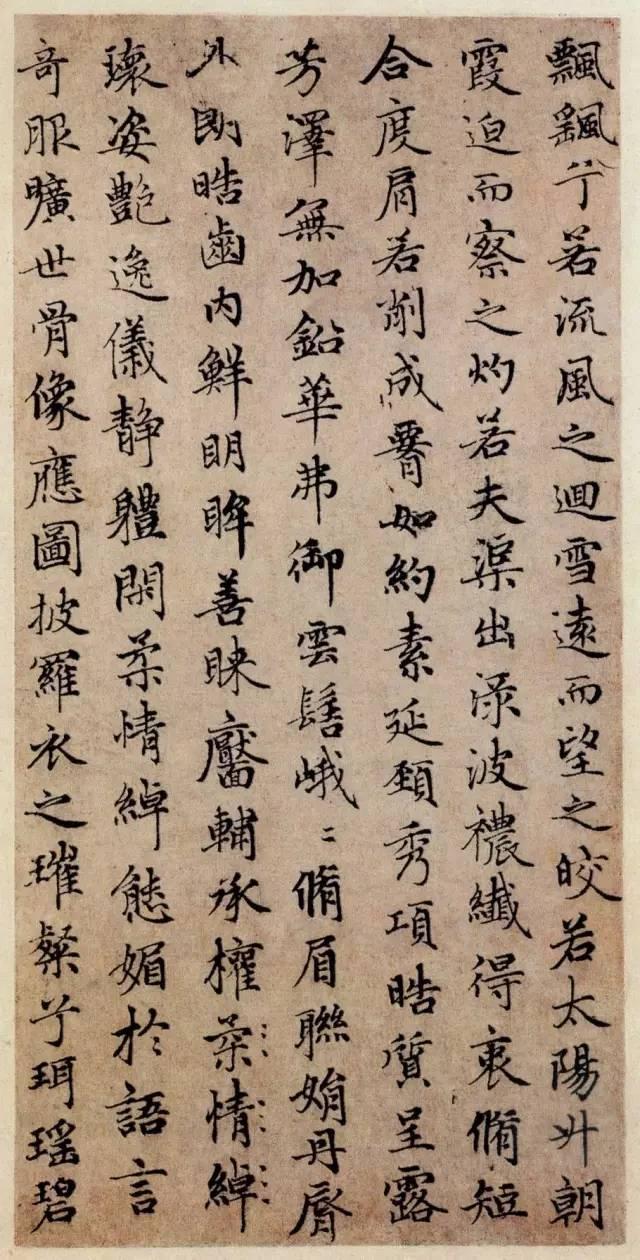 飄颻兮若流風之迴雪遠而望之皎若太陽升朝
霞迫而察之灼若夫渠出淥波襛纖得衷脩短
合度肩若削成腰如約素延頸秀項皓質呈露
芳澤無加鉛華弗御雲髻峨〻脩眉聯娟丹脣
外朗皓齒内鮮明眸善睞靨輔承權柔情綽
瓌姿艷逸儀静體閑柔情綽態媚於語言
奇服曠世骨像應圖披羅衣之璀粲兮珥瑶碧